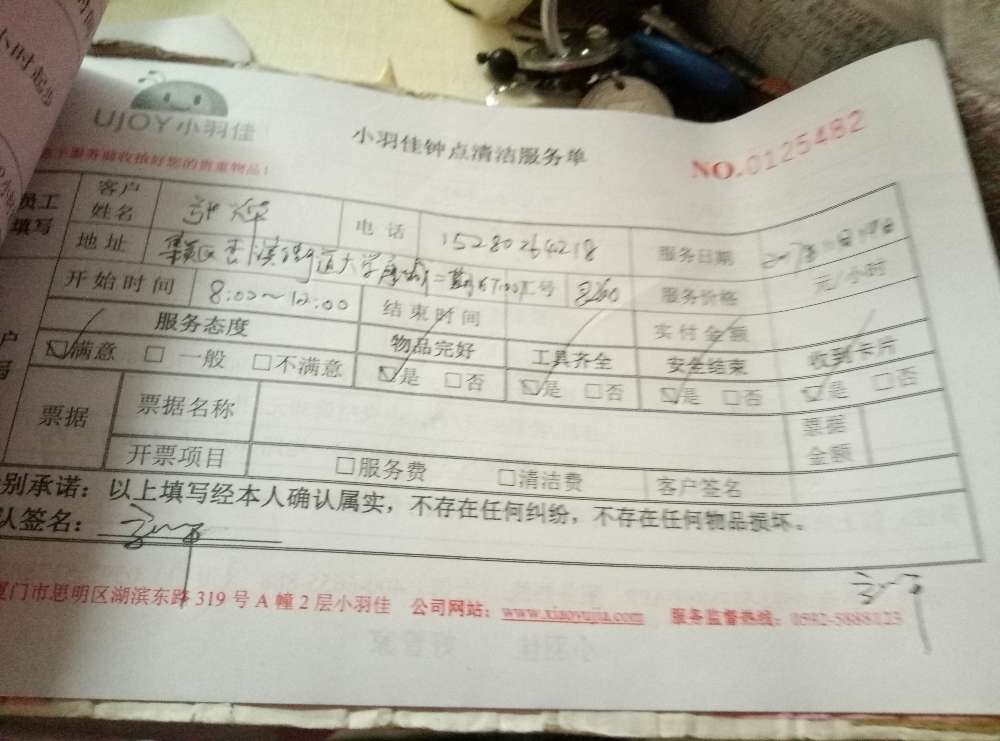 小时起步
UJOY小羽佳
小羽佳钟点清洁服务单
NO.0125482
服务验收拾好您的贵重物品！
员工填写 客户姓名 张 电话 15280264218 服务日期
地址 集美区杏滨街道大学 号 服务价格 元/小时
开始时间 8:00～12:00 结束时间 实付金额
服务态度 物品完好 工具齐全 安全结束 收到卡片
☑满意 □一般 □不满意 ☑是 □否 ☑是 □否 ☑是 □否 ☑是 □否
票据 票据名称 票据金额
开票项目 □服务费 □清洁费 客户签名
别承诺：以上填写经本人确认属实，不存在任何纠纷，不存在任何物品损坏。
人签名：
厦门市思明区湖滨东路319号A幢2层小羽佳 公司网站：www.xiaoyujia.com 服务监督热线：0592-5888123